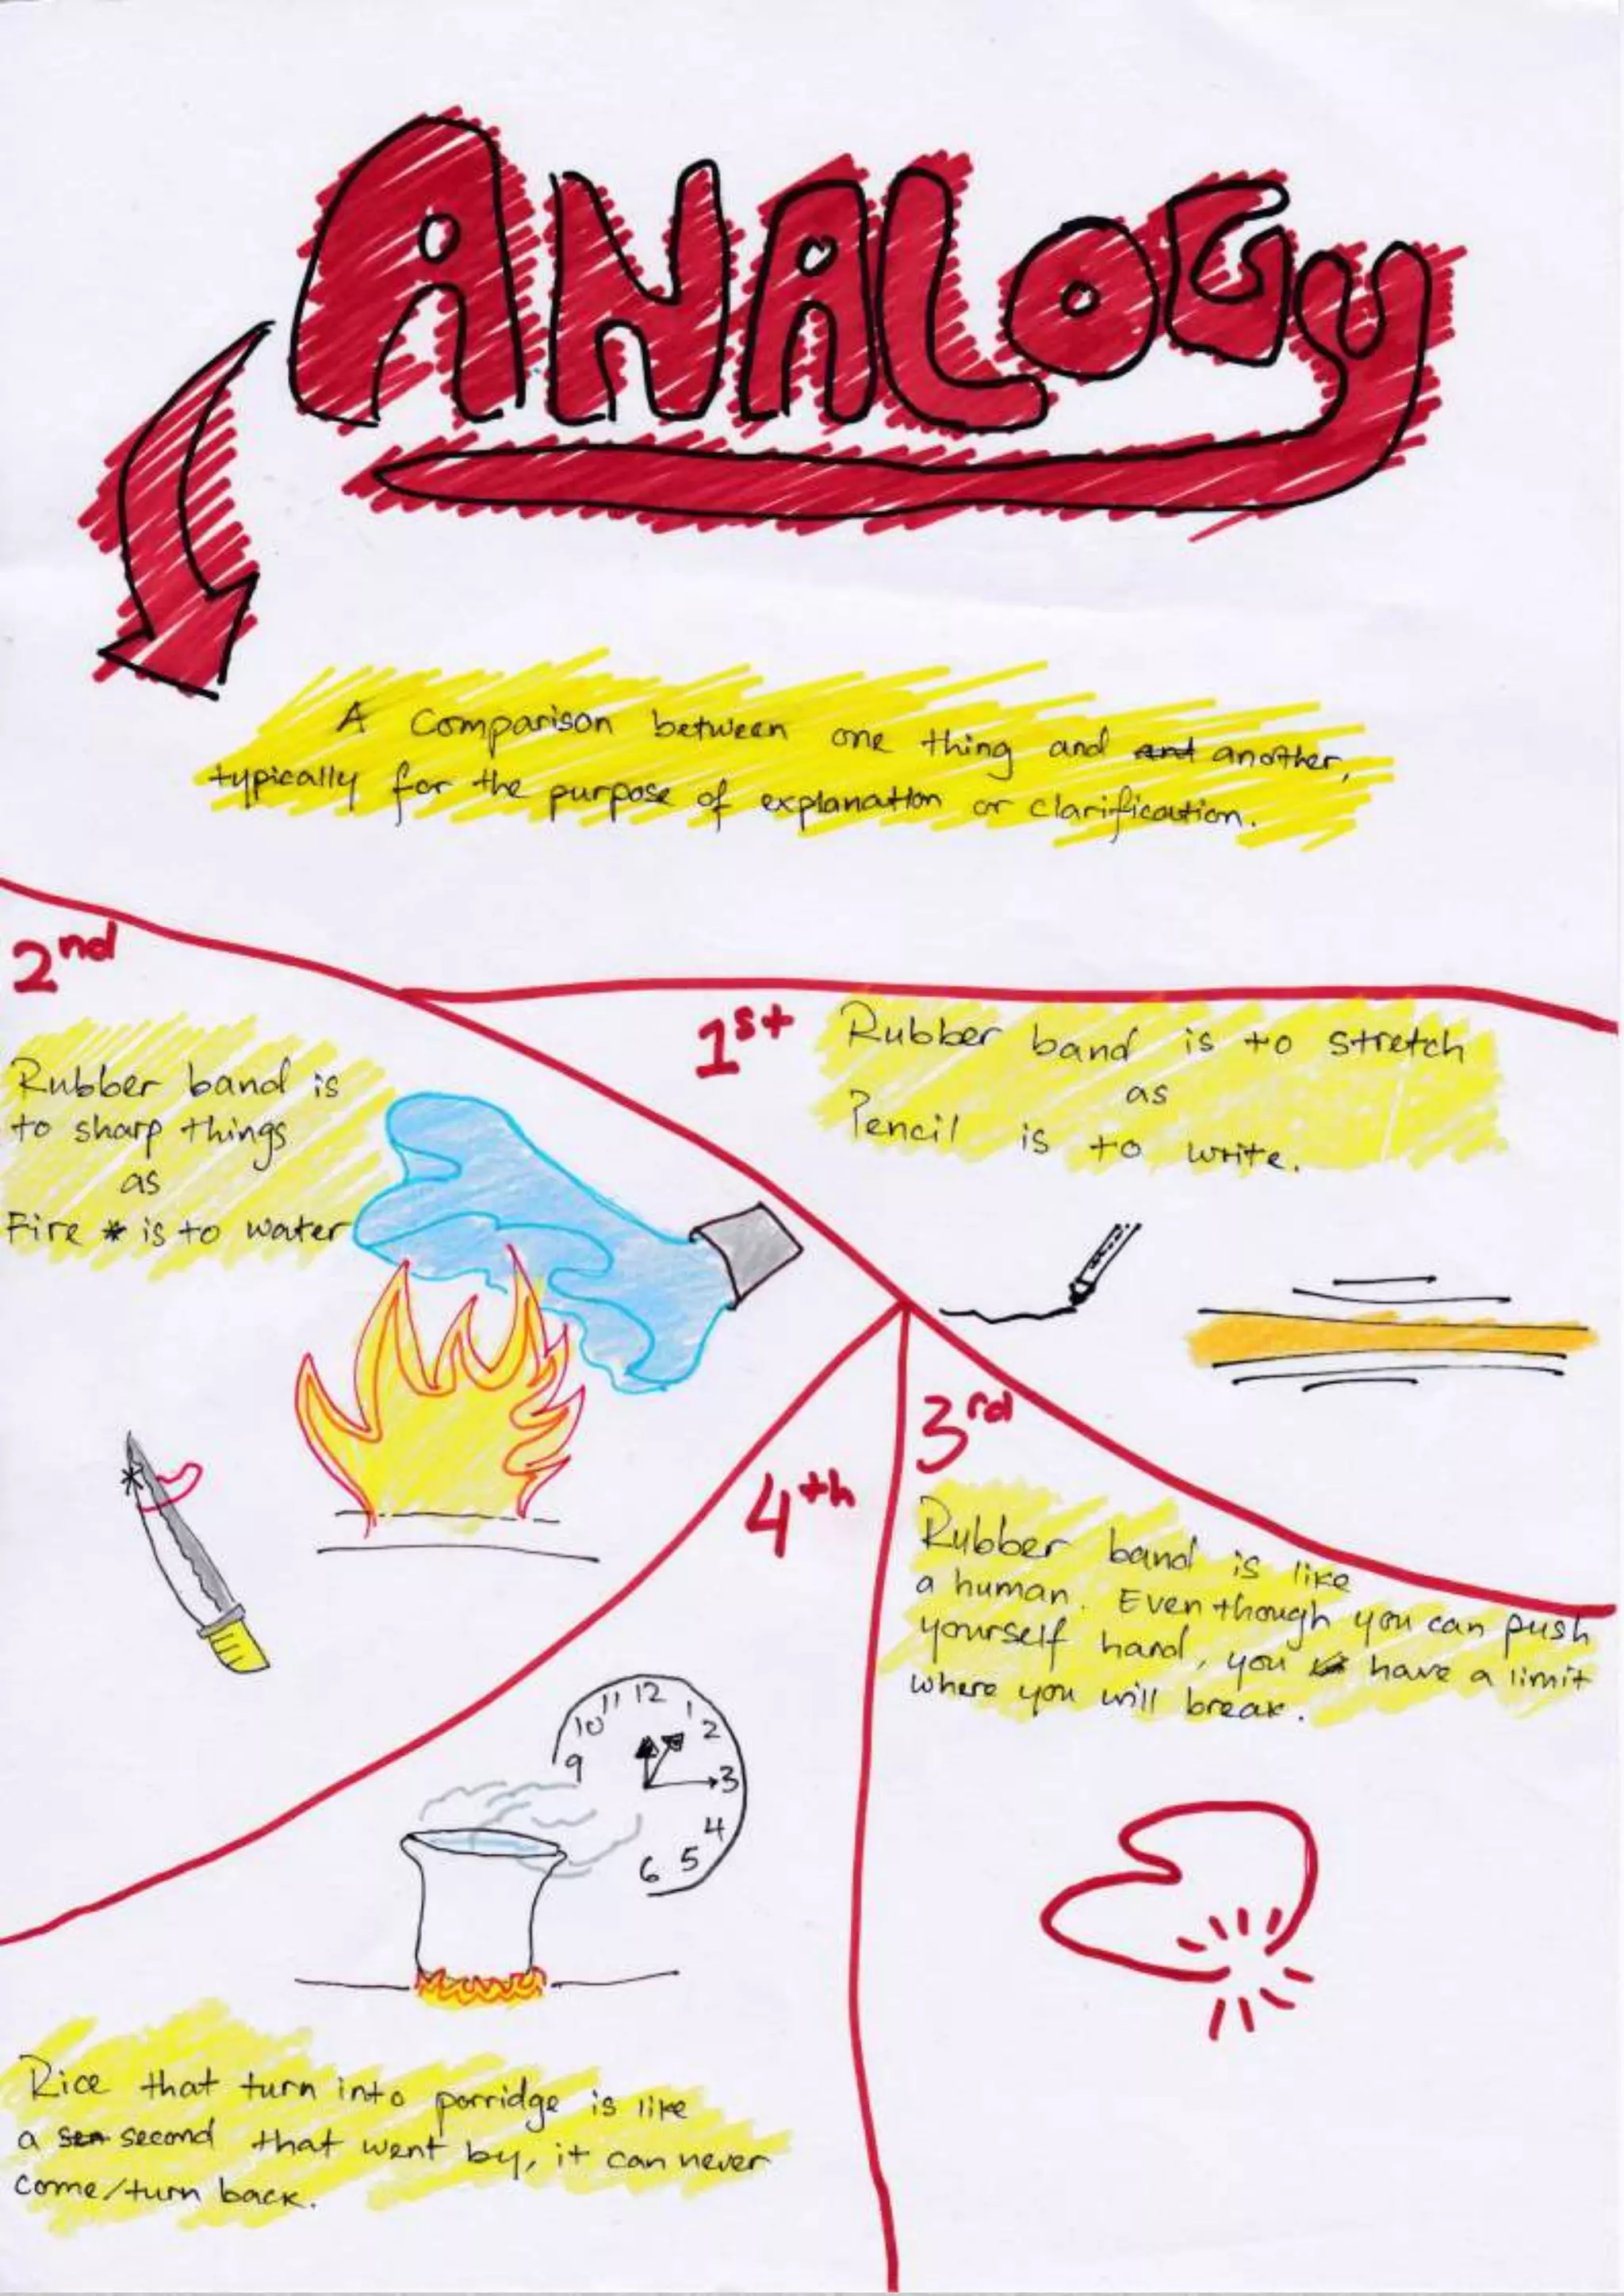 ANALOGY
A Comparison between one thing and and another,
typically for the purpose of explanation or clarification.
2nd
Rubber band is
to sharp things
as
Fire * is to water
1st
Rubber band is to stretch
as
Pencil is to write.
3rd
Rubber band is like
a human. Even though you can push
yourself hard, you have a limit
where you will break.
4th
11 12 1
10 2
9 3
4
6 5
Rice that turn into porridge is like
a sea second that went by, it can never
come/turn back.